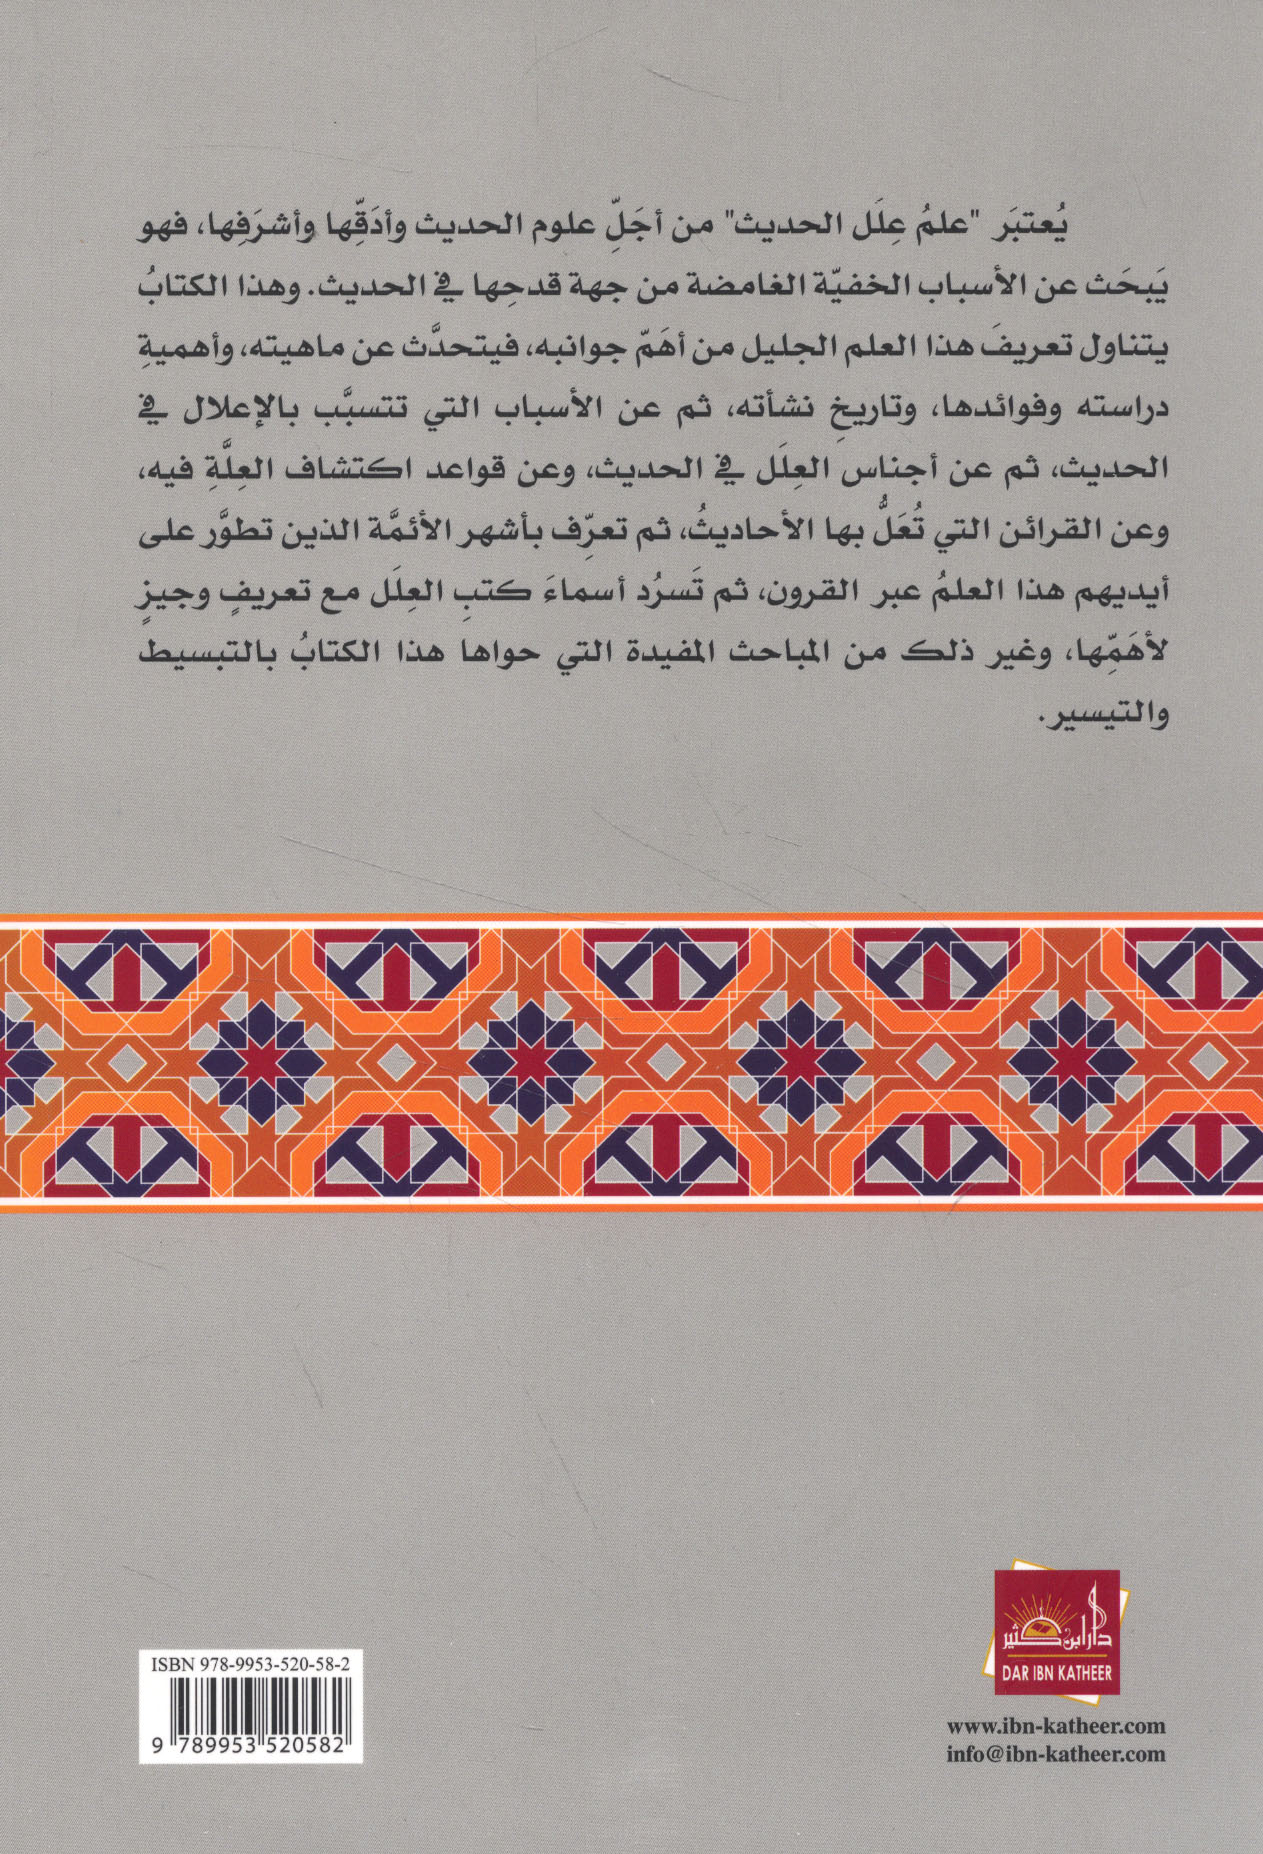 يُعتبَر "علمُ عِلَل الحديث" من أجَلِّ علوم الحديث وأدَقِّها وأشرَفِها، فهو
يَبحَث عن الأسباب الخفيّة الغامضة من جهة قدحِها في الحديث. وهذا الكتابُ
يتناول تعريفَ هذا العلم الجليل من أهَمّ جوانبه، فيتحدَّث عن ماهيته، وأهميةِ
دراسته وفوائدها، وتاريخِ نشأته، ثم عن الأسباب التي تتسبَّب بالإعلال في
الحديث، ثم عن أجناس العِلَل في الحديث، وعن قواعد اكتشاف العِلَّةِ فيه،
وعن القرائن التي تُعَلُّ بها الأحاديثُ، ثم تعرِّف بأشهر الأئمَّة الذين تطوَّر على
أيديهم هذا العلمُ عبر القرون، ثم تَسرُد أسماءَ كتبِ العِلَل مع تعريفٍ وجيزٍ
لأهَمِّها، وغير ذلك من المباحث المفيدة التي حواها هذا الكتابُ بالتبسيط
والتيسير.
دار ابن كثير
DAR IBN KATHEER
www.ibn-katheer.com
info@ibn-katheer.com
ISBN 978-9953-520-58-2
9 789953 520582